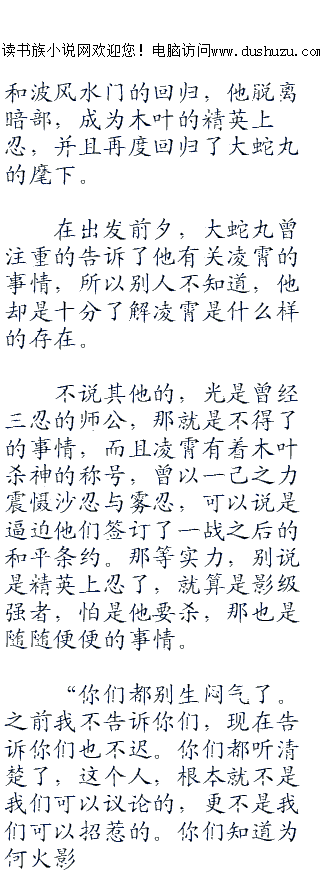 读书族小说网欢迎您！电脑访问www.dushuzu.com
和波风水门的回归，他脱离
暗部，成为木叶的精英上
忍，并且再度回归了大蛇丸
的麾下。
在出发前夕，大蛇丸曾
注重的告诉了他有关凌霄的
事情，所以别人不知道，他
却是十分了解凌霄是什么样
的存在。
不说其他的，光是曾经
三忍的师公，那就是不得了
的事情，而且凌霄有着木叶
杀神的称号，曾以一己之力
震慑沙忍与雾忍，可以说是
逼迫他们签订了一战之后的
和平条约。那等实力，别说
是精英上忍了，就算是影级
强者，怕是他要杀，那也是
随随便便的事情。
“你们都别生闷气了。
之前我不告诉你们，现在告
诉你们也不迟。你们都听清
楚了，这个人，根本就不是
我们可以议论的，更不是我
们可以招惹的。你们知道为
何火影